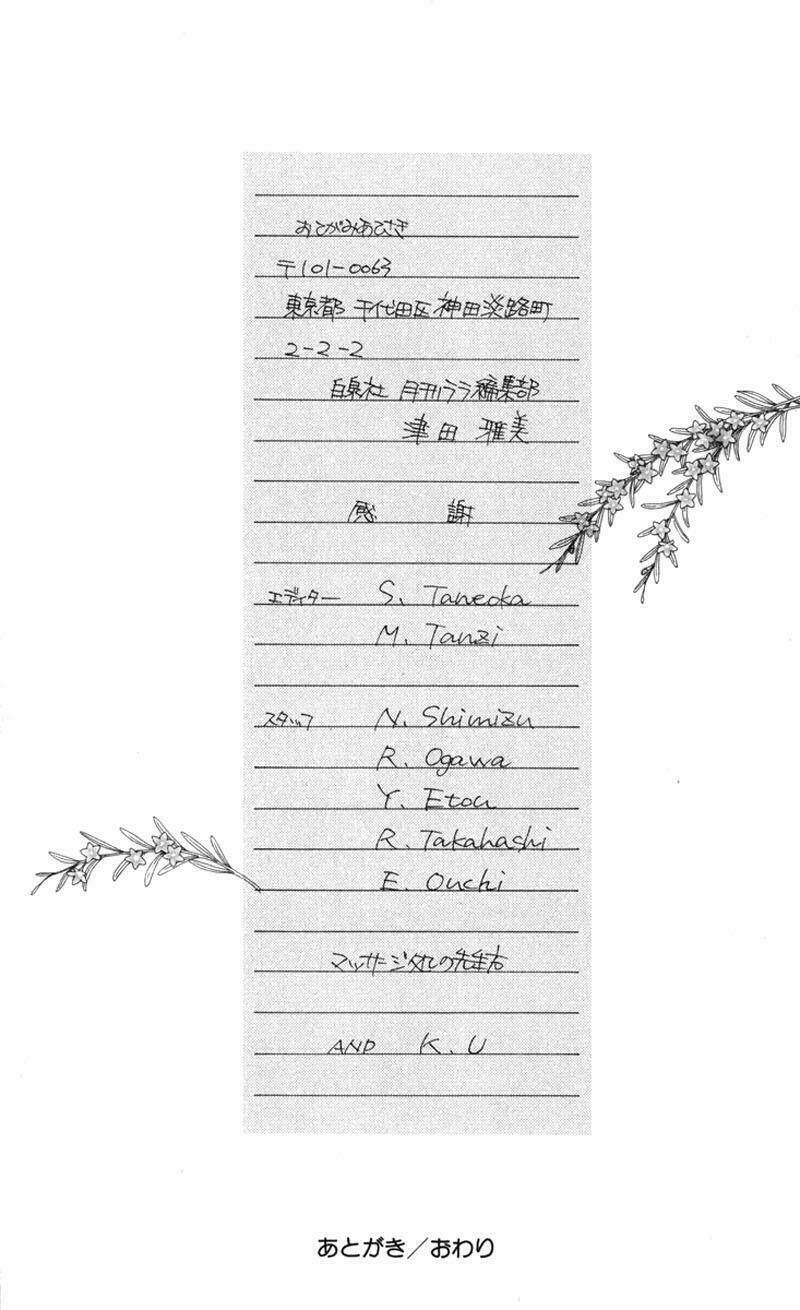 おてがみあてさき
〒101-0063
東京都 千代田区 神田淡路町
2-2-2
白泉社 月刊ララ編集部
津田 雅美
感 謝
エディター S. Taneoka
M. Tanzi
スタッフ N. Shimizu
R. Ogawa
Y. Etou
R. Takahashi
E. Ouchi
マッサージ の先生方
AND K.U
あとがき／おわり